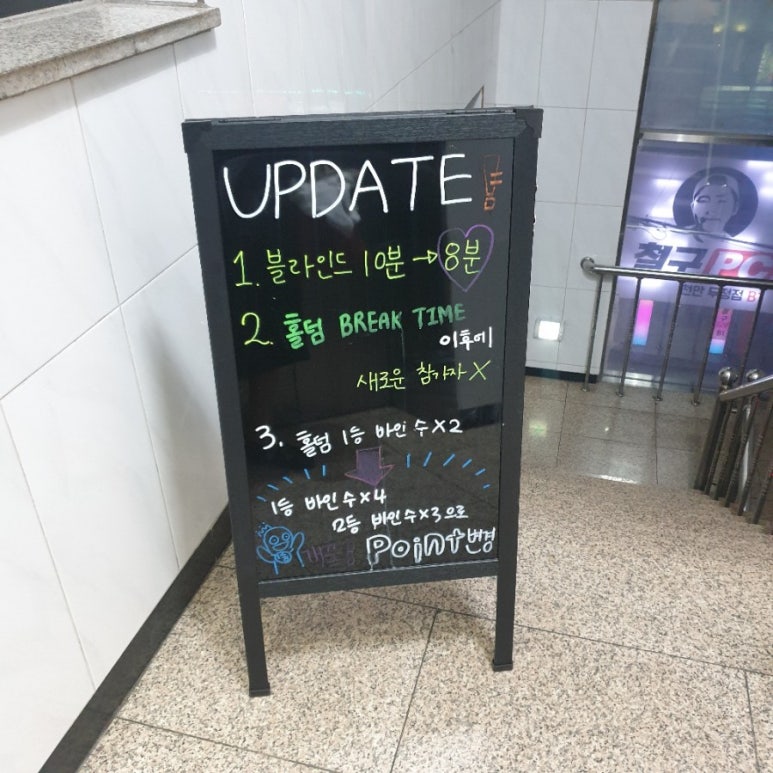 UPDATE!
1. 블라인드 10분 → 8분
2. 홀덤 BREAK TIME
이후에
새로운 참가자 X
3. 홀덤 1등 바인 수 X2
1등 바인 수 X4
2등 바인 수 X3으로
Point 변경
철구 PC